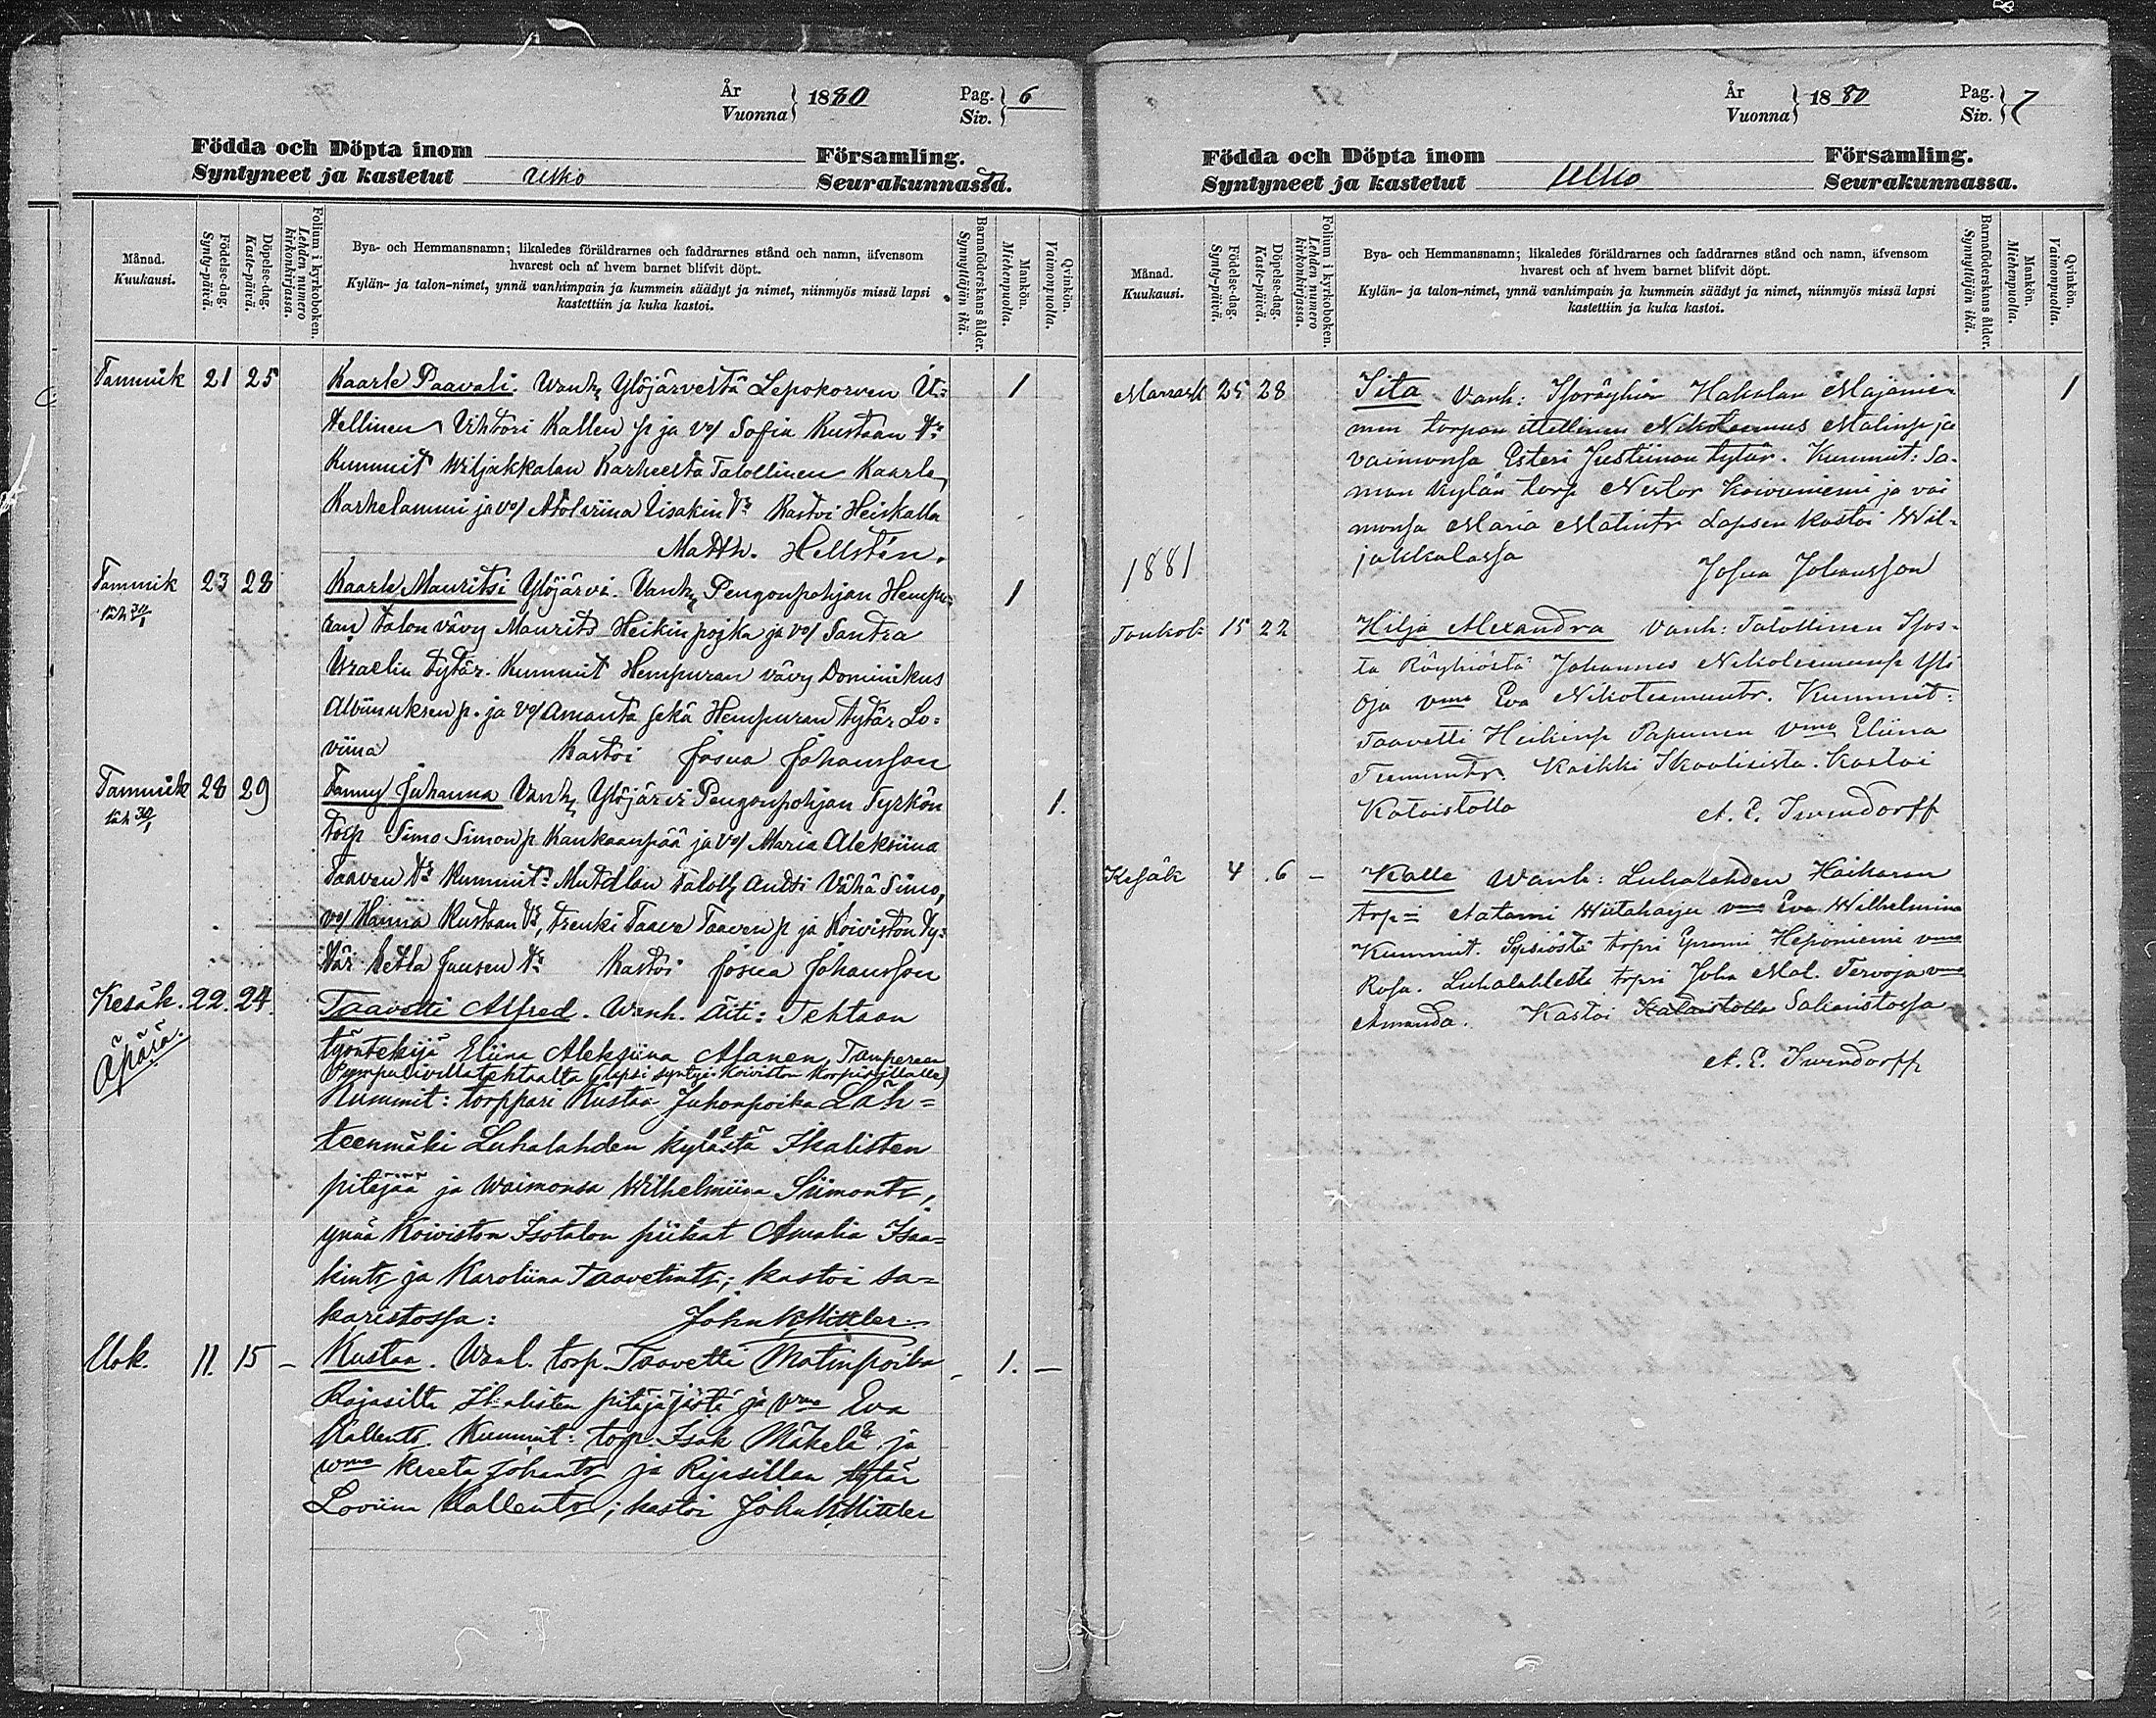 År
Vuonna } 1880 Pag.
Siv. } 6
Födda och Döpta inom Församling.
Syntyneet ja kastetut Ulko Seurakunnassa.
Månad.
Kuukausi.
Födelse-dag.
Synty-päivä.
Döpelse-dag.
Kaste-päivä.
Folium i kyrkoboken.
Lehden numero
kirkonkirjassa.
Bya- och Hemmansnamn; likaledes föräldrarnes och faddrarnes stånd och namn, äfvensom
hvarest och af hvem barnet blifvit döpt.
Kylän- ja talon-nimet, ynnä vanhimpain ja kummein säädyt ja nimet, niinmyös missä lapsi
kastettiin ja kuka kastoi.
Barnaföderskans ålder.
Synnyttäjän ikä.
Mankön.
Miehenpuolta.
Qvinkön.
Vaimonpuolta.
Tammik 21 25 Kaarle Paavali. Wanh Ylöjärvestä Lepokorven It- 1
tellinen Vihtori Kallen p ja vo/ Sofia Kustaan tr
Kummit Wiljakkalan Karheesta Talollinen Kaarle
Karhelammi ja vo/ Adolviina Iisakin tr Kastoi Heiskalla
Matth. Hellstén.
Tammik 23 28 Kaarle Mauritsi Ylöjärvi. Vanh Pengonpohjan Hempu- 1
ran talon vävy Maurits Heikin pojka ja vo/ Santra
Israelin tytär. Kummit Hempuran vävy Dominikus
Albiinuksen p. ja vo/ Amanta sekä Hempuran tytär Lo-
viina Kastoi Josua Johansson
Tammik 28 29 Fanny Juhanna Vanh Ylöjärvi Pengonpohjan Tyrkön 1.
torp Simo Simon p Kankaanpää ja vo/ Maria Aleksiina
Taaven tr Kummit: Mutalan talol Antti Vähä Simo,
vo/ Hanna Kustaan tr, trenki Taave Taaven p ja Koiviston ty-
tär Hetta Juusen tr Kastoi Josua Johansson
Kesäk. 22. 24. Taavetti Alfred. Wanh. äiti: Tehtaan
Äpärä. työntekijä Eliina Aleksiina Alanen, Tampereen
Pumpulivillatehtaalta (lapsi syntyi Koiviston Korpisillalle)
Kummit: torppari Kustaa Juhonpoika Läh-
teenmäki Luhalahden kylästä Ikalisten
pitäjää ja Waimonsa Wilhelmiina Siimontr,
ynnä Koiviston Isotalon piikat Amalia Isaa-
kintr ja Karoliina Taavetintr; kastoi sa-
karistossa: John W. Mittler
Elok. 11. 15 – Kustaa. Wanh. torp. Taavetti Matinpoika – 1. –
Rajasilta Ikalisten pitäjäjästä ja vmo Eva
Kallentr. Kummit: torp. Isak Mäkelä ja
wmo Kreeta Johantr ja Rajasillan tytär
Loviina Kallentr; kastoi John W. Mittler
År
Vuonna } 1880 Pag.
Siv. } 7
Födda och Döpta inom Församling.
Syntyneet ja kastetut Ulko Seurakunnassa.
Månad.
Kuukausi.
Födelse-dag.
Synty-päivä.
Döpelse-dag.
Kaste-päivä.
Folium i kyrkoboken.
Lehden numero
kirkonkirjassa.
Bya- och Hemmansnamn; likaledes föräldrarnes och faddrarnes stånd och namn, äfvensom
hvarest och af hvem barnet blifvit döpt.
Kylän- ja talon-nimet, ynnä vanhimpain ja kummein säädyt ja nimet, niinmyös missä lapsi
kastettiin ja kuka kastoi.
Barnaföderskans ålder.
Synnyttäjän ikä.
Mankön.
Miehenpuolta.
Qvinkön.
Vaimonpuolta.
Marrask 25 28 Iita Vanh: Isoröyhiön Hakalan Majanie- 1
men torpan itellinen Nikoteemus Matinp ja
vaimonsa Esteri Justiinan tytär. Kummit: Sa-
man kylän torp Nestor Koivuniemi ja vai
monsa Maria Matintr Lapsen kastoi Wil-
jakkalassa Josua Johansson
1881
Toukok 15 22 Hilja Alexandra Vanh: Talollinen Isos-
ta Röyhiöstä Johannes Nikoteemusp Yli
Oja vmo Eva Nikoteemuntr. Kummit:
Taavetti Heikinp Papunen vmo Eliina
Teemuntr. Kaikki Ikaalisista. Kastoi
Kataistolla A. E. Iwendorff
Kesäk 4 6 – Kalle Wanh: Luhalahden Haikaran
trp: Aatami Wiitaharju vmo Eva Wilhelmina
Kummit. Sipsiöstä torpri Epromi Heponiemi vmo
Rosa. Luhalahdelta torpri Joha Mat. Tervoja vmo
Amanda. Kastoi Kataistolla Sakaristossa
A. E. Iwendorff